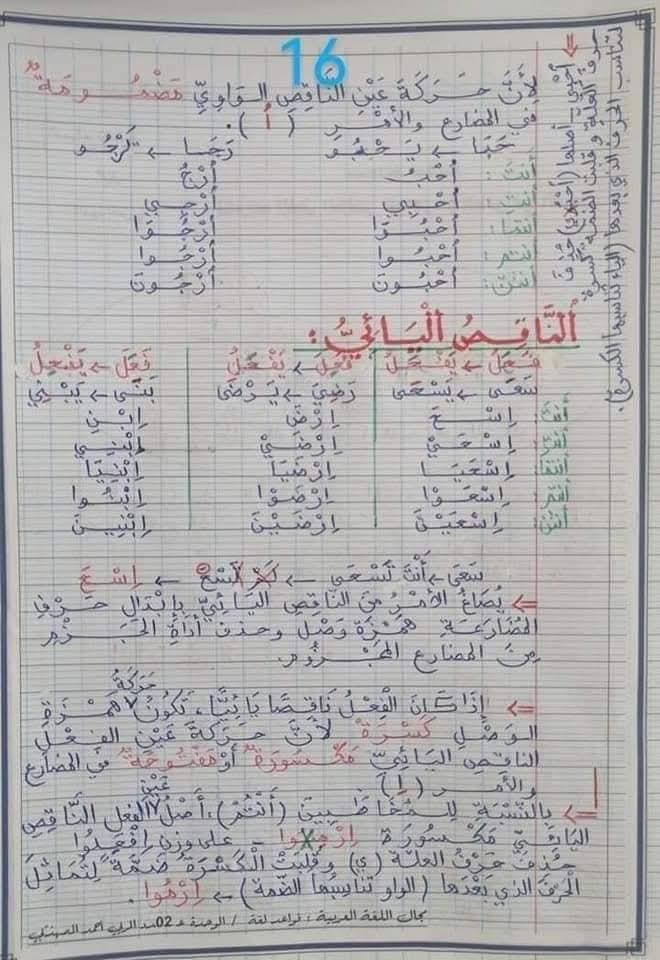 16
لِأَنَّ حَرَكَةَ عَيْنِ النَّاقِصِ الوَاوِيِّ مَضْمُومَةٌ
في المضارع والأَمْرِ ( أُ ).
حَبَا ← يَحْبُو رَجَا ← يَرْجُو
أنتَ : أُحْبُ أُرْجُ
أنتِ : أُحْبِي أُرْجِي
أنتما : أُحْبُوَا أُرْجُوَا
أنتم : أُحْبُوا أُرْجُوا
أنتنّ : أُحْبُونَ أُرْجُونَ
⇐ أُحْبِي - أصلها (أُحْبُوِي) حُذِفَ
حرف العلّة و قلبت الضمة كسرة
لتناسب الحرف الذي بعدها (الياء تناسبها الكسرة).
النَّاقِصُ الْيَائِيُّ :
فَعَلَ ← يَفْعَلُ فَعِلَ ← يَفْعَلُ فَعَلَ ← يَفْعِلُ
سَعَى ← يَسْعَى رَضِيَ ← يَرْضَى بَنَى ← يَبْنِي
أنتَ : اِسْعَ اِرْضَ اِبْنِ
أنتِ : اِسْعَيْ اِرْضَيْ اِبْنِي
أنتما : اِسْعَيَا اِرْضَيَا اِبْنِيَا
أنتم : اِسْعَوْا اِرْضَوْا اِبْنُوا
أنتنّ : اِسْعَيْنَ اِرْضَيْنَ اِبْنِينَ
سَعَى ← أَنْتَ تَسْعَى ← لَمْ تَسْعَ ← اِسْعَ
⇐ يُصَاغُ الأَمْرُ مِنَ الناقِصِ اليَائِيِّ بِإِبْدَالِ حَرْفِ
المُضَارَعَةِ هَمْزَةَ وَصْلٍ وحذف أداةِ الجَزْمِ
مِنَ المضارع المَجْزُومِ.
⇐ إِذَا كَانَ الْفِعْلُ نَاقِصًا يَائِيًّا، تَكُونُ حَرَكَةُ هَمْزَةِ
الوَصْلِ كَسْرَةً لأنّ حَرَكَةَ عَيْنِ الفِعْلِ
الناقِصِ اليَائِيِّ مَكْسُورَةٌ أَوْ مَفْتُوحَةٌ في المضارع
والأمر (إِ)
⇐ بِالنِّسْبَةِ لِلمُخَاطَبِينَ (أَنْتُمْ)، أَصْلُ عَيْنِ الفعل النَّاقِصِ
اليَائِيِّ مَكْسُورَة اِرْمِيُوا - على وزن اِفْعِلُوا
حُذِفَ حَرْفُ العلّة (ي) وقُلِبَتْ الكَسْرَةُ ضَمَّةً لِتُمَاثِلَ
الْحَرْفَ الذي بَعْدَهَا (الواو تناسبها الضمّة) ← اِرْمُوا.
مجال اللغة العربية : قواعد لغة / الوحدة 02